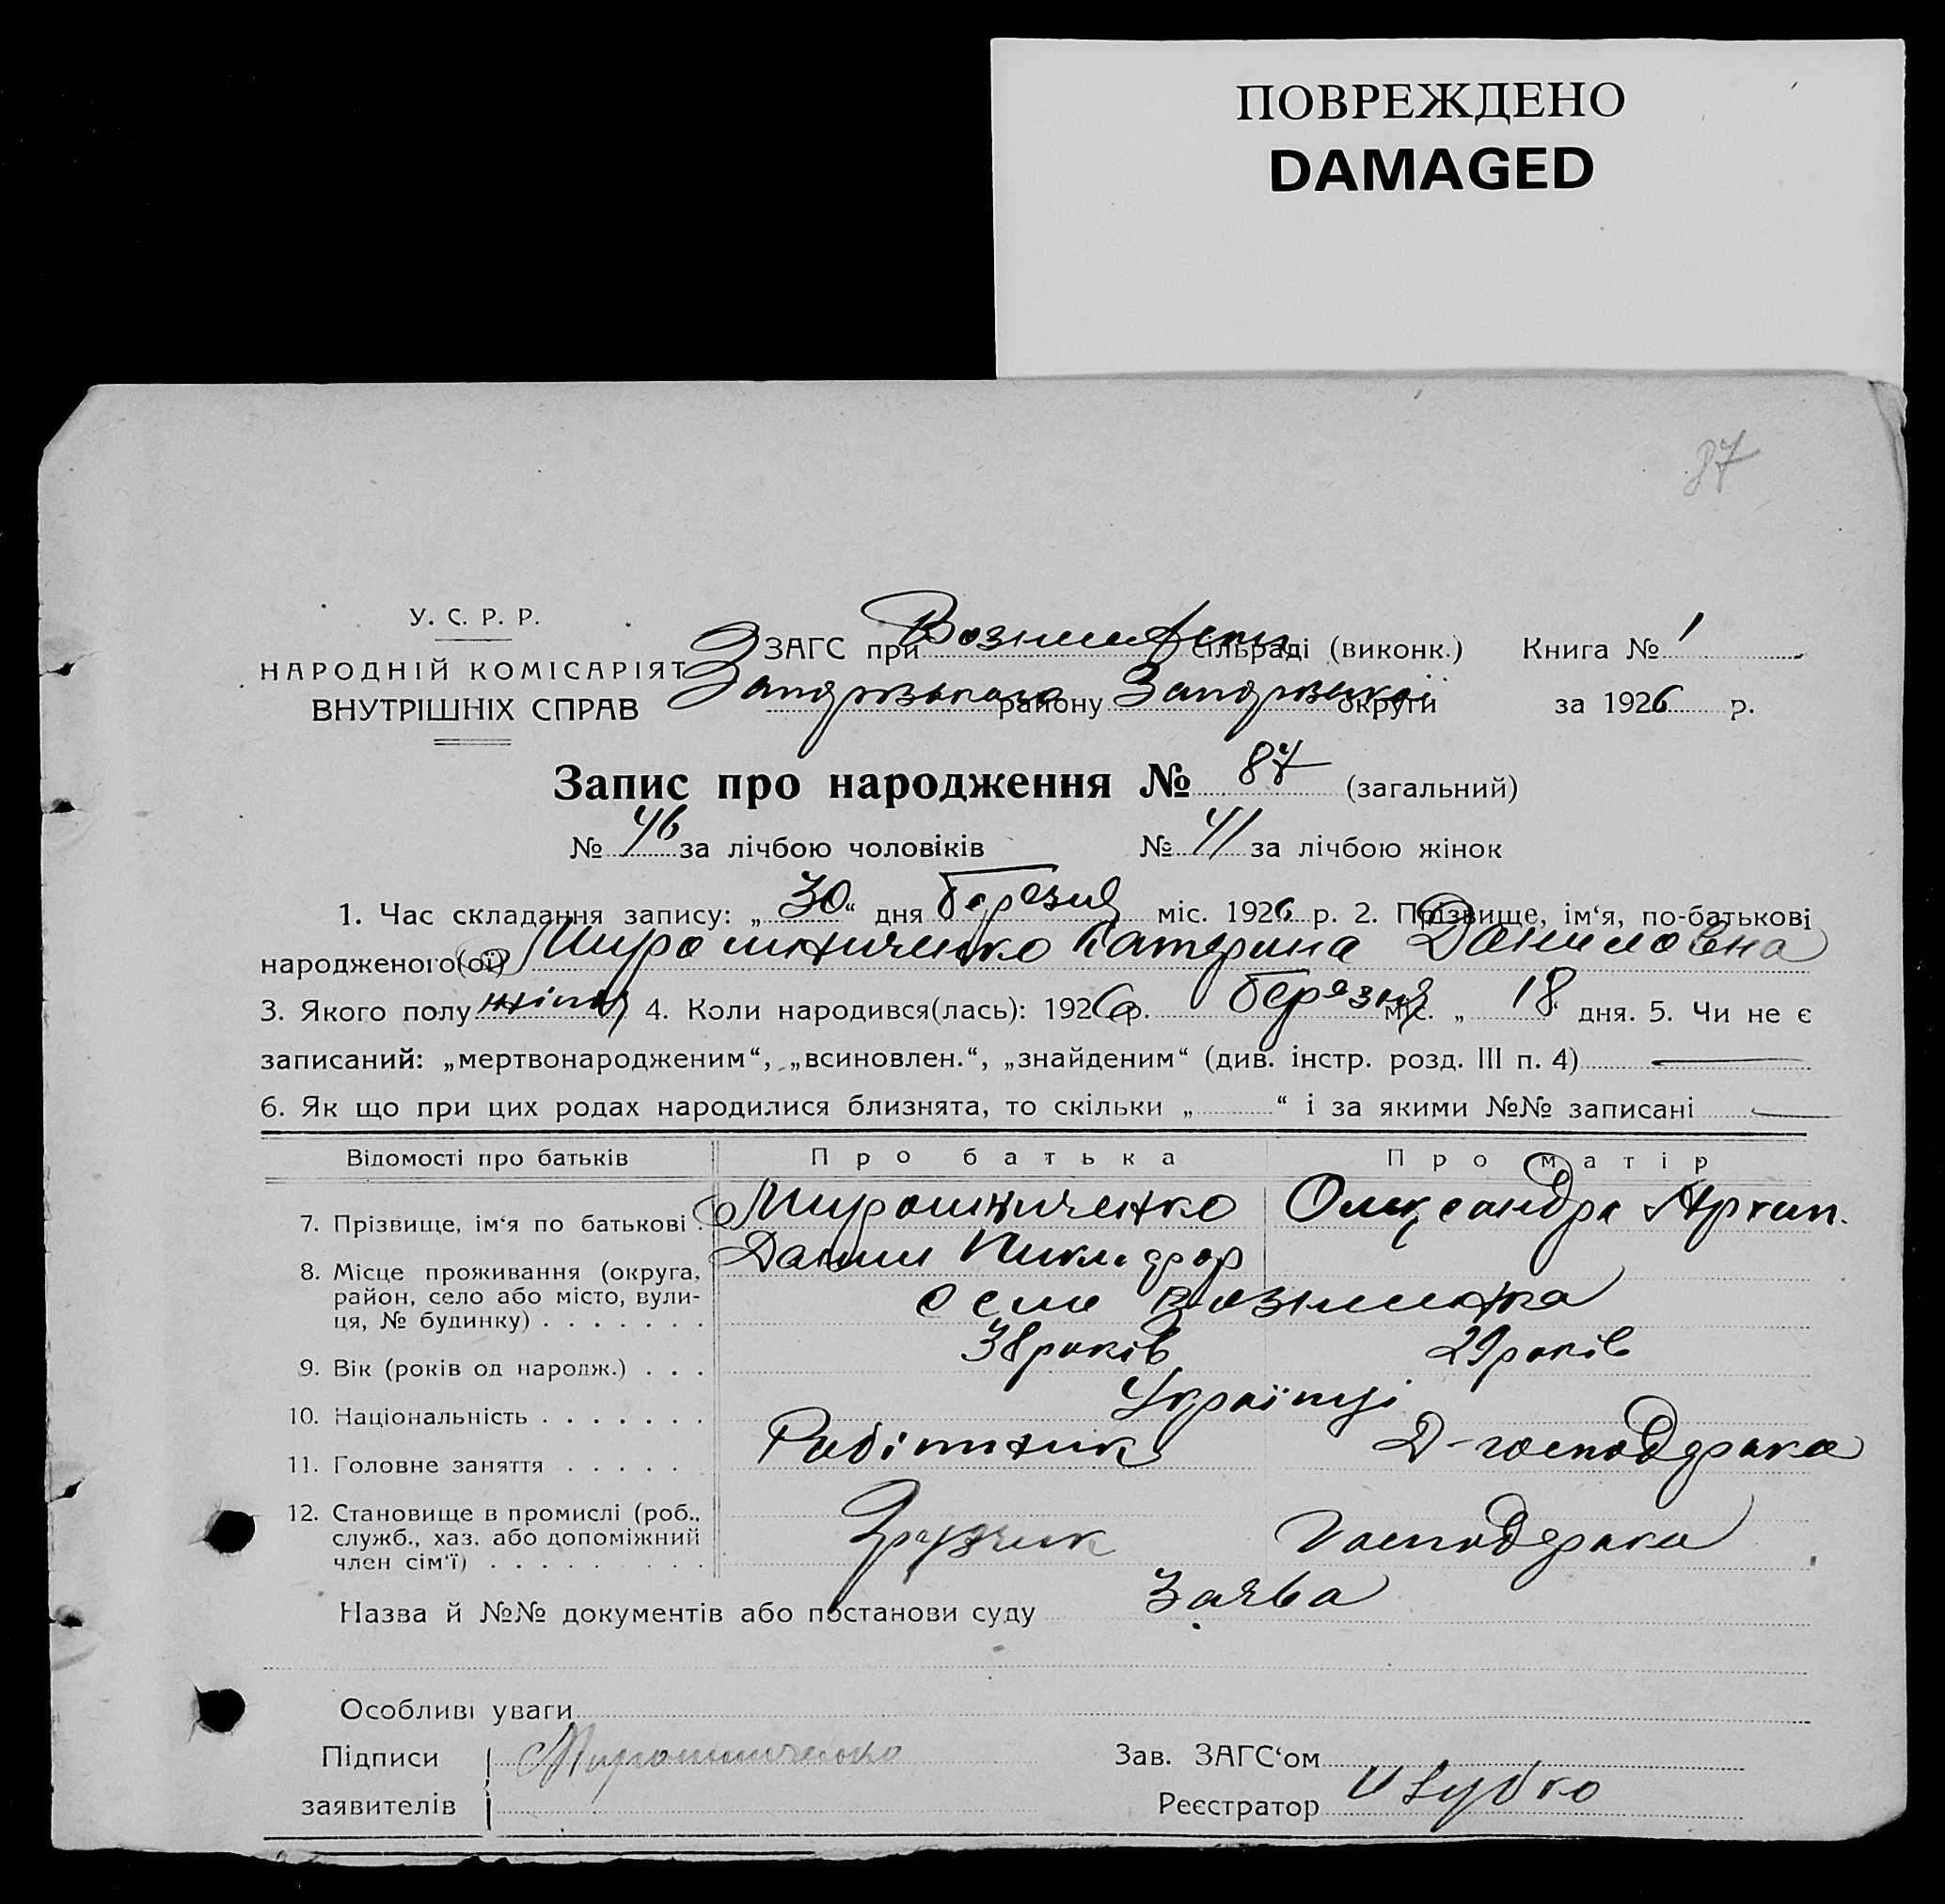 ПОВРЕЖДЕНО
DAMAGED
87
У. С. Р. Р.
НАРОДНІЙ КОМІСАРІЯТ
ВНУТРІШНІХ СПРАВ
ЗАГС при сільраді (виконк.) Книга № 1
району округи за 1926 р.
Запис про народження № 87 (загальний)
№ 46 за лічбою чоловіків № 41 за лічбою жінок
1. Час складання запису: „ 30 “ дня березня міс. 1926 р. 2. Прізвище, ім‘я, по-батькові
народженого(ої) Мирошниченко Катерина Даниловна
3. Якого полу 4. Коли народився(лась): 1926 р. березня міс. „ 18 “ дня. 5. Чи не є
записаний: „мертвонародженим“, „всиновлен.“, „знайденим“ (див. інстр. розд. III п. 4)
6. Як що при цих родах народилися близнята, то скільки „ “ і за якими №№ записані
Відомості про батьків Про батька Про матір
7. Прізвище, ім‘я по батькові Мирошниченко Олександра Архип.
Данил
8. Місце проживання (округа,
район, село або місто, вули-
ця, № будинку) . . . . . . .
9. Вік (років од народж.) . . . 38 років 29 років
10. Національність . . . . . . . Українці
11. Головне заняття . . . . . Робітник Д-господарка
12. Становище в промислі (роб.,
служб., хаз. або допоміжний
член сім‘ї) . . . . . . . . . Грузчик Господарка
Назва й №№ документів або постанови суду Заява
Особливі уваги
Підписи Мирошниченко Зав. ЗАГС‘ом
заявителів Реєстратор